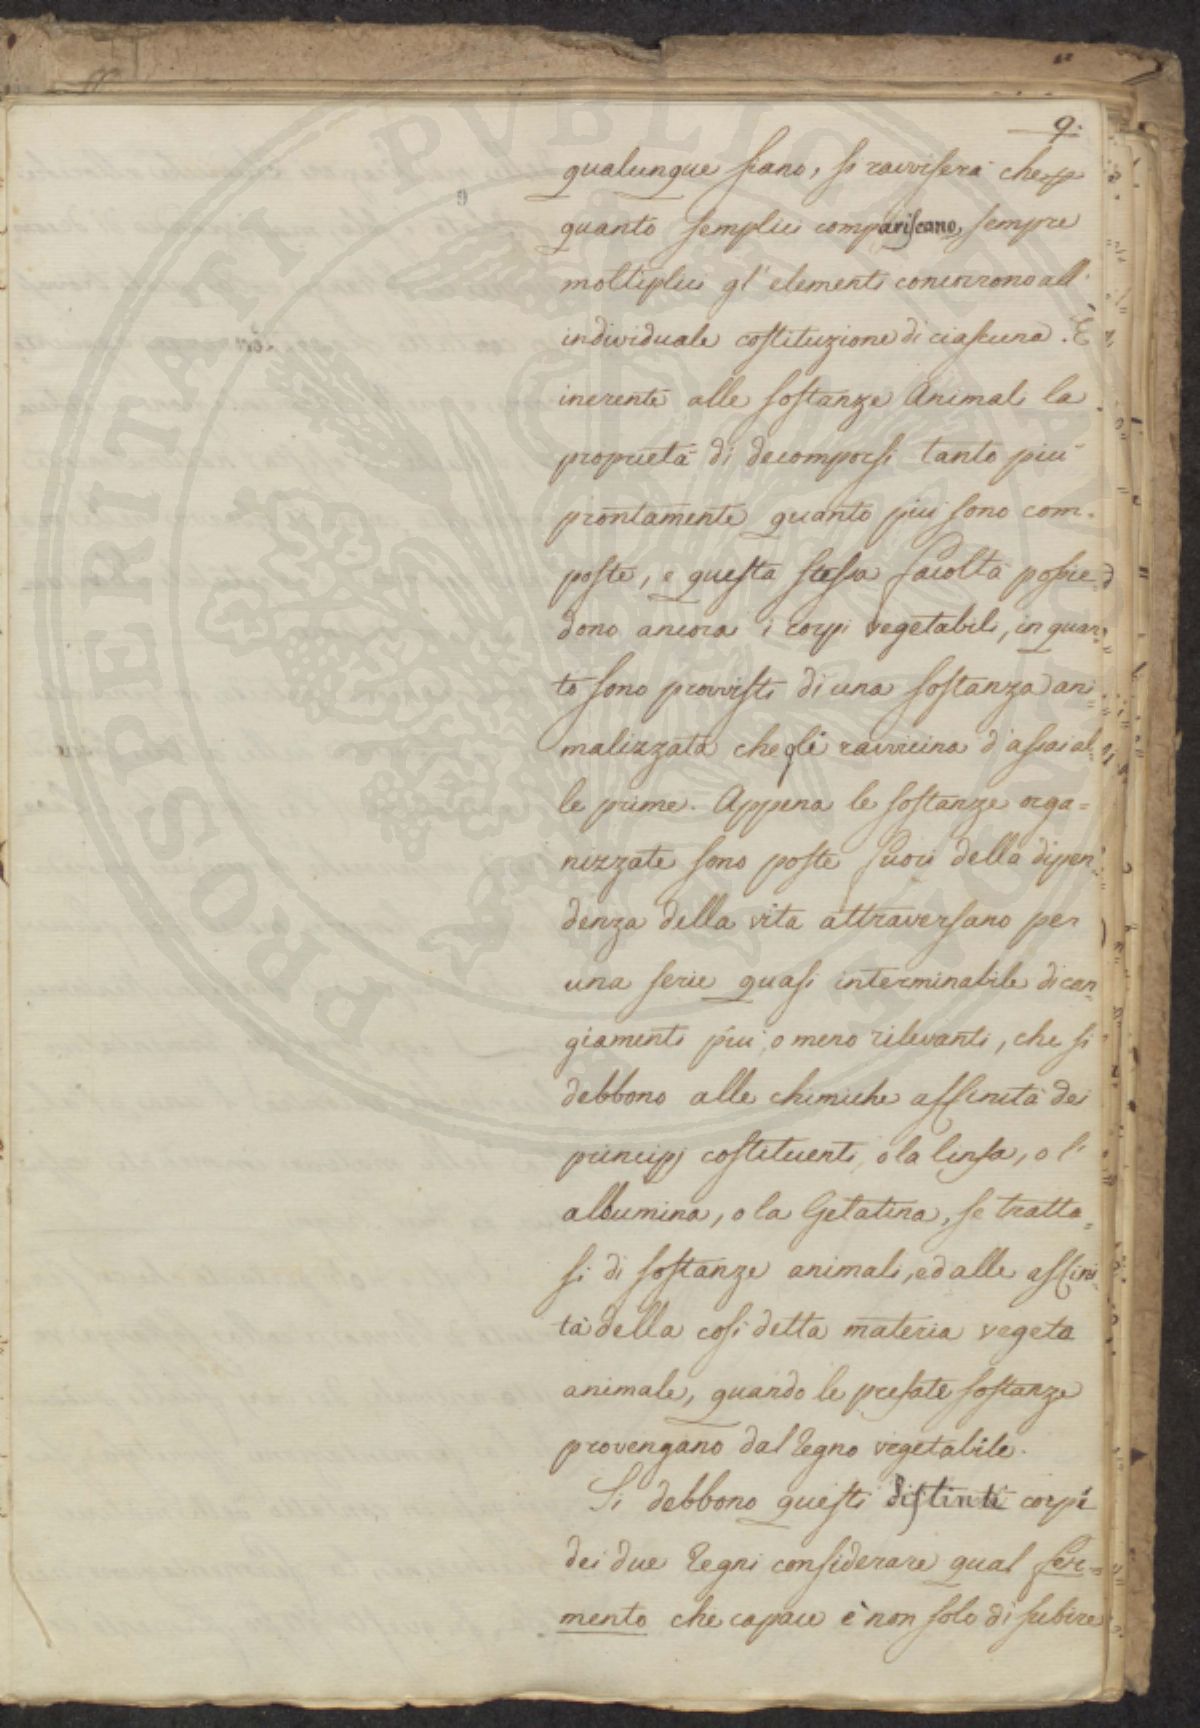 9.
qualunque siano, si ravviserà che
quanto semplici compariscano, sempre
moltiplici gl'elementi concorrono all'
individuale costituzione di ciascuna. È
inerente alle sostanze Animali la
proprietà di decomporsi tanto più
prontamente quanto più sono com-
poste, e questa stessa facoltà possie=
dono ancora i corpi vegetabili, in quan=
to sono provvisti di una sostanza ani=
malizzata che gli ravvicina d'assai al=
le prime. Appena le sostanze orga=
nizzate sono poste fuori della dipen=
denza della vita attraversano per
una serie quasi interminabile di can=
giamenti più, o meno rilevanti, che si
debbono alle chimiche affinità dei
principj costituenti, o la linfa, o l'
albumina, o la Gelatina, se tratta=
si di sostanze animali, ed alle affini=
tà della così detta materia vegeto
animale, quando le prefate sostanze
provengano dal regno vegetabile.
Si debbono questi distinti corpi
dei due regni considerare qual fer=
mento che capace è non solo di subire
PROSPERITATI PVBLICAE AVGENDAE